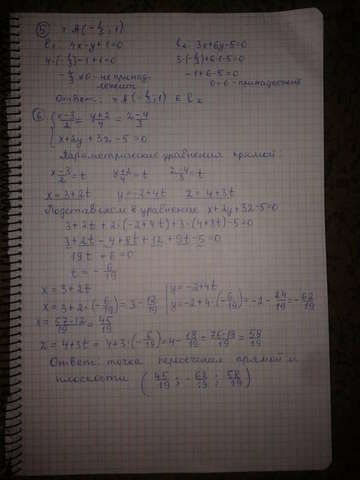 ⑤ т. A(-1/3; 1)
l₁ 4x-y+1=0
l₂ 3x+6y-5=0
4·(-1/3)-1+1=0
3·(-1/3)+6·1-5=0
-4/3≠0 - не принад-
лежит
-1+6-5=0
0=0 - принадлежит
Ответ: т. A(-1/3; 1) ∈ l₂
⑥ { (x-3)/2 = (y+2)/4 = (z-4)/3
x+2y+3z-5=0
Параметрические уравнения прямой:
(x-3)/2=t (y+2)/4=t (z-4)/3=t
x=3+2t y=-2+4t z=4+3t
Подставляем в уравнение x+2y+3z-5=0
3+2t+2·(-2+4t)+3·(4+3t)-5=0
3+2t-4+8t+12+9t-5=0
19t+6=0
t=-6/19
x=3+2t | y=-2+4t
x=3+2·(-6/19)=3-12/19 | y=-2+4·(-6/19)=-2-24/19=-62/19
x=(57-12)/19=45/19
z=4+3t=4+3·(-6/19)=4-18/19=(76-18)/19=58/19
Ответ: точка пересечения прямой и
плоскости (45/19; -62/19; 58/19)